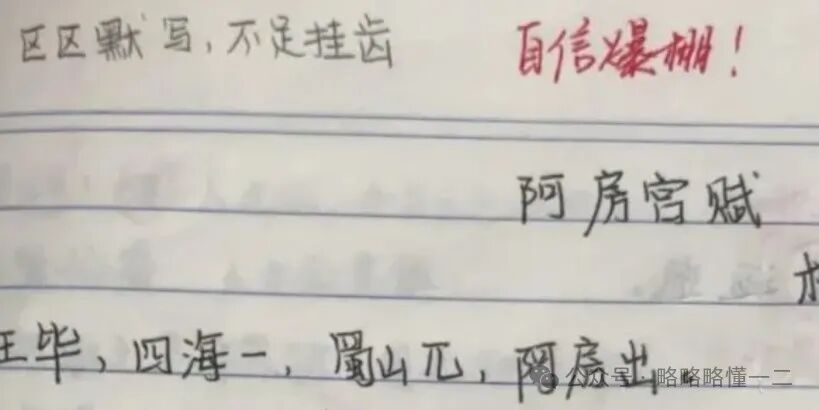 区区默写，不足挂齿 自信爆棚！
阿房宫赋
王毕，四海一，蜀山兀，阿房出。
公众号·略略略懂一二